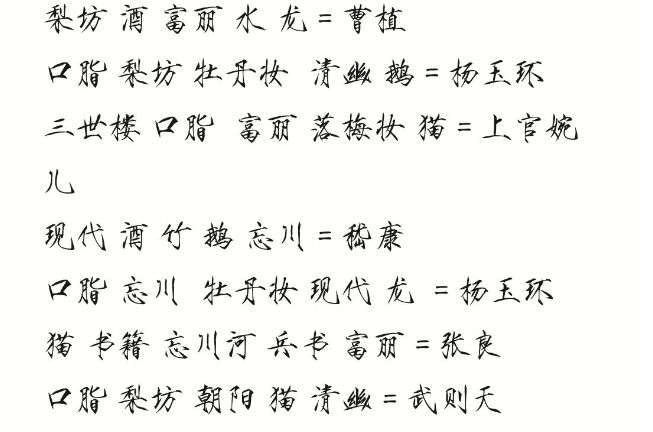 梨坊 酒 富丽 水 龙=曹植
口脂 梨坊 牡丹妆 清幽 鹅=杨玉环
三世楼 口脂 富丽 落梅妆 猫=上官婉
儿
现代 酒 竹 鹅 忘川=嵇康
口脂 忘川 牡丹妆 现代 龙 =杨玉环
猫 书籍 忘川河 兵书 富丽=张良
口脂 梨坊 朝阳 猫 清幽=武则天